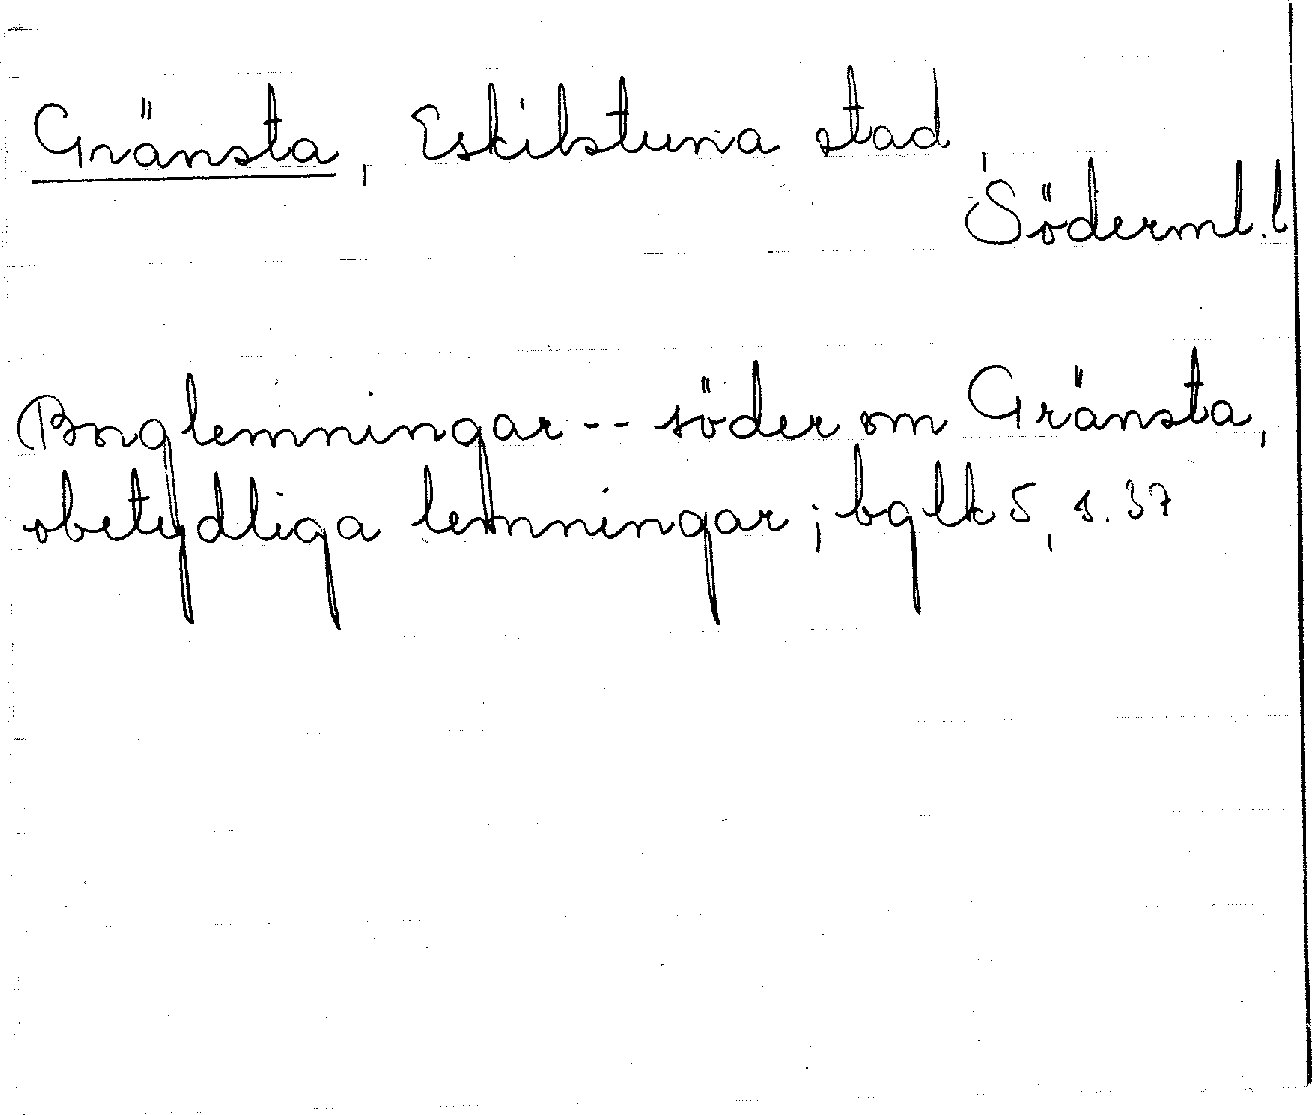 Gränsta, Eskilstuna stad,
Söderml. l
Borglemningar -- söder om Gränsta,
obetydliga lemningar; bglk 5, s. 37